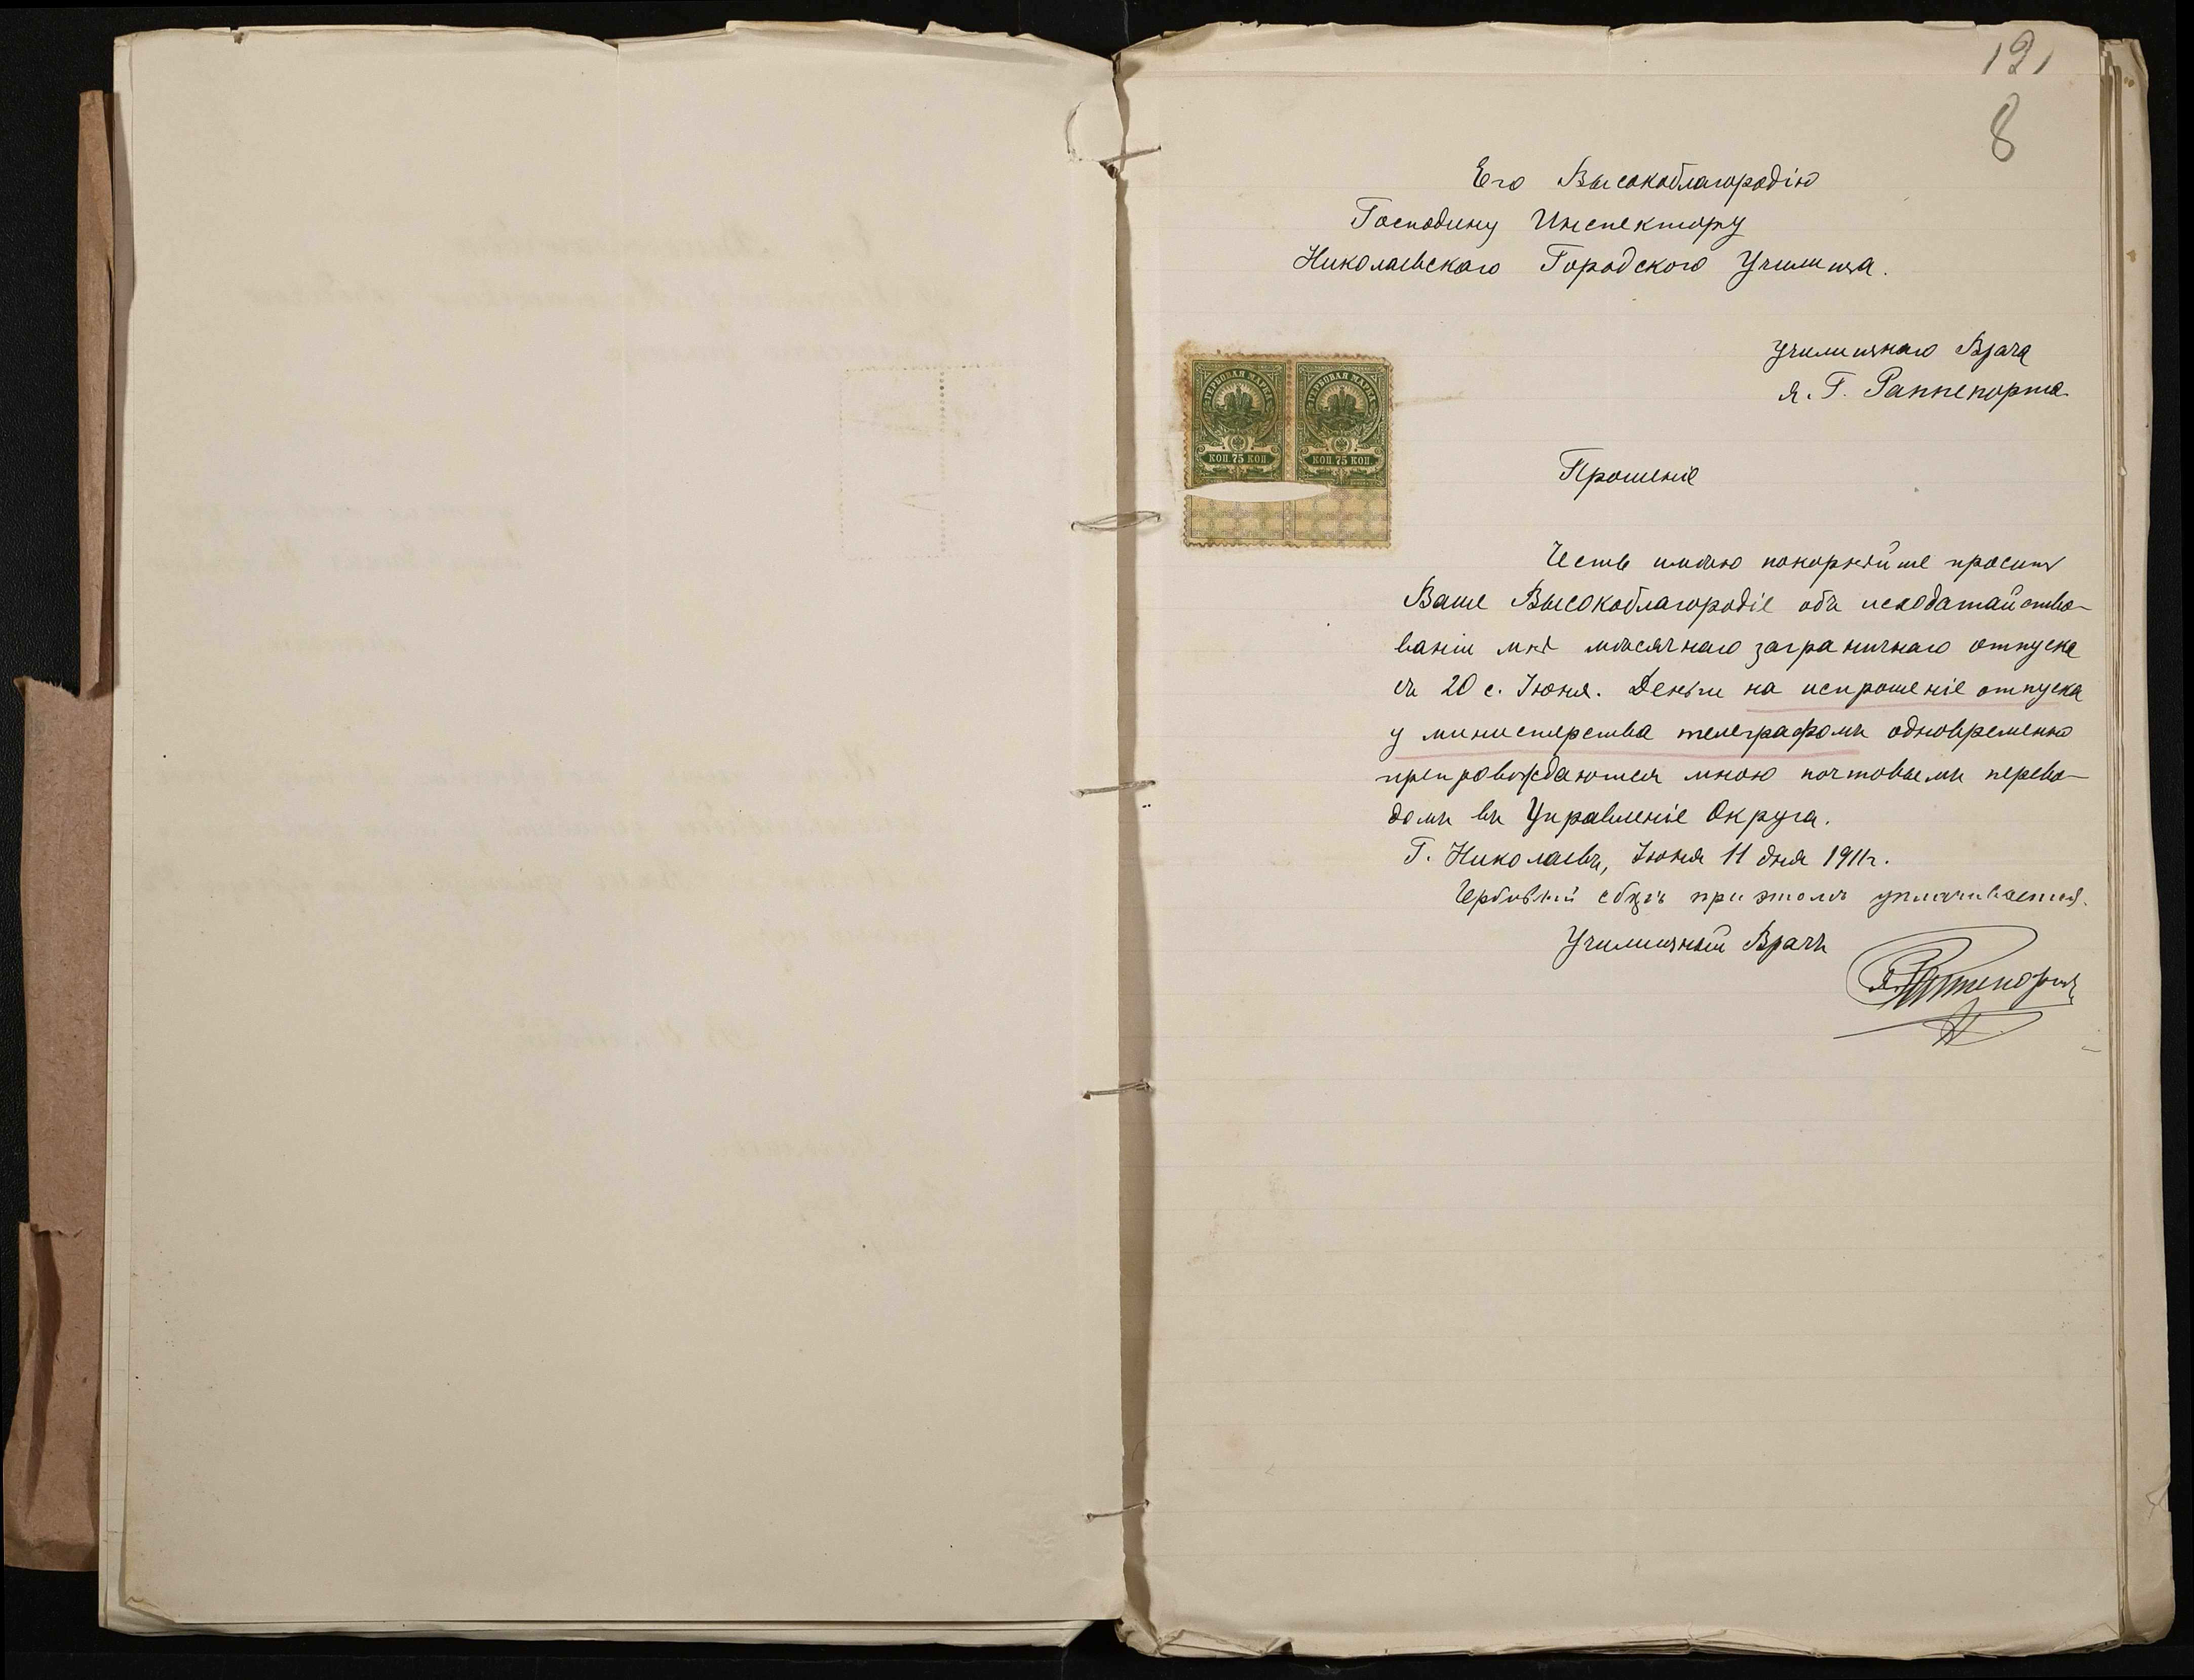 121
8
Его Высокоблагородію
Господину Инспектору
Николаевскаго Городского Училища.
Училищнаго Врача
Я. Г. Раппепорта
ГЕРБОВАЯ МАРКА ГЕРБОВАЯ МАРКА
КОП. 75 КОП. КОП. 75 КОП.
Прошеніе
Честь имѣю покорнѣйше просить
Ваше Высокоблагородіе объ исходатайство-
ваніи мнѣ мѣсячнаго заграничнаго отпуска
съ 20 с. Іюня. Деньги на испрошеніе отпуска
у министерства телеграфомъ одновременно
препровождаются мною почтовымъ перево-
домъ въ Управленіе Округа.
Г. Николаевъ, Іюня 11 дня 1911 г.
Гербовый сборъ при этомъ уплачивается.
Училищный Врачъ
Я. Раппепортъ